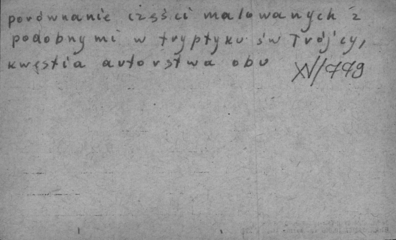 porównanie części malowanych z
podobnymi w tryptyku św Trójcy,
kwestia autorstwa obu